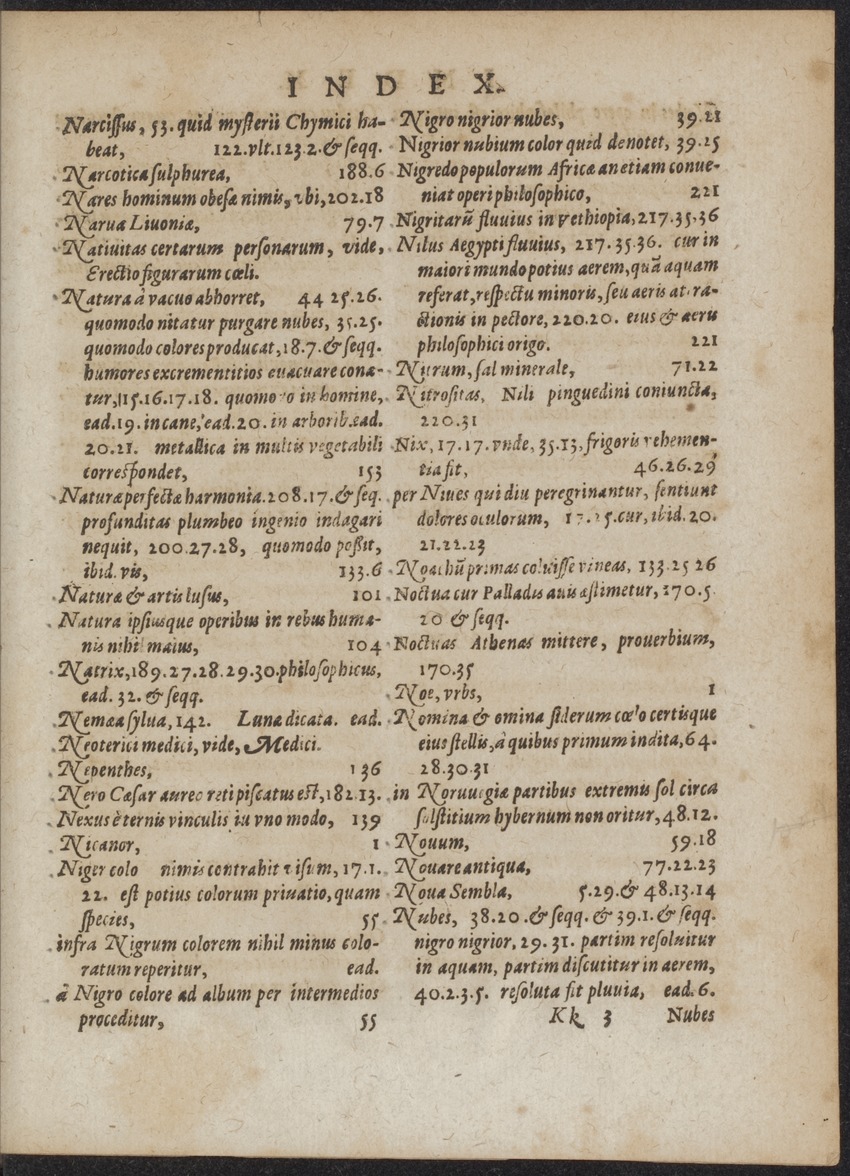 INDEX.
Narcissus, 53. quid mysterii Chymici ha-
beat, 122.vlt.123.2.& seqq.
Narcotica sulphurea, 188.6
Nares hominum obesæ nimis, vbi, 202.18
Narua Liuoniæ, 79.7
Natiuitas certarum personarum, vide,
Erectio figurarum cœli.
Natura à vacuo abhorret, 44 25.26.
quomodo nitatur purgare nubes, 35.25.
quomodo colores producat, 18.7.& seqq.
humores excrementitios euacuare cona-
tur, 15.16.17.18. quomodo in homine,
ead.19. in cane, ead.20. in arborib.ead.
20.21. metallica in multis vegetabili
correspondet, 153
Naturæ perfectæ harmonia. 208.17.& seq.
profunditas plumbeo ingenio indagari
nequit, 200.27.28, quomodo possit,
ibid. vis, 133.6
Naturæ & artis lusus, 101
Natura ipsiusque operibus in rebus huma-
nis nihil maius, 104
Natrix, 189.27.28.29.30.philosophicus,
ead. 32. & seqq.
Nemæa sylua, 142. Lunæ dicata. ead.
Neoterici medici, vide, Medici.
Nepenthes, 136
Nero Cæsar aureo reti piscatus est, 182.13.
Nexus èternis vinculis in vno modo, 139
Nicanor, 1
Niger colo nimis contrahit visum, 17.1.
22. est potius colorum priuatio, quam
species, 55
infra Nigrum colorem nihil minus colo-
ratum reperitur, ead.
à Nigro colore ad album per intermedios
proceditur, 55
Nigro nigrior nubes, 39.21
Nigrior nubium color quid denotet, 39.25
Nigredo populorum Africæ an etiam conue-
niat operi philosophico, 221
Nigritarũ fluuius in Aethiopia, 217.35.36
Nilus Aegypti fluuius, 217.35.36. cur in
maiori mundo potius aerem, quã aquam
referat, respectu minoris, seu aeris attra-
ctionis in pectore, 220.20. eius & aeris
philosophici origo. 221
Nitrum, sal minerale, 71.22
Nitrositas, Nili pinguedini coniuncta,
220.31
Nix, 17.17. vnde, 35.13, frigoris vehemen-
tia fit, 46.26.29
per Niues qui diu peregrinantur, sentiunt
dolores oculorum, 17.25.cur, ibid. 20.
21.22.23
Noachũ primas coluisse vineas, 133.25 26
Noctua cur Palladis auis æstimetur, 170.5.
20 & seqq.
Noctuas Athenas mittere, prouerbium,
170.35
Noe, vrbs, 1
Nomina & omina siderum cœlo certisque
eius stellis, à quibus primum indita, 64.
28.30.31
in Noruuegiæ partibus extremis sol circa
solstitium hybernum non oritur, 48.12.
Nouum, 59.18
Nouare antiqua, 77.22.23
Noua Sembla, 5.29.& 48.13.14
Nubes, 38.20.& seqq. & 39.1.& seqq.
nigro nigrior, 29.31. partim resoluitur
in aquam, partim discutitur in aerem,
40.2.3.5. resoluta fit pluuia, ead.6.
Kk 3 Nubes